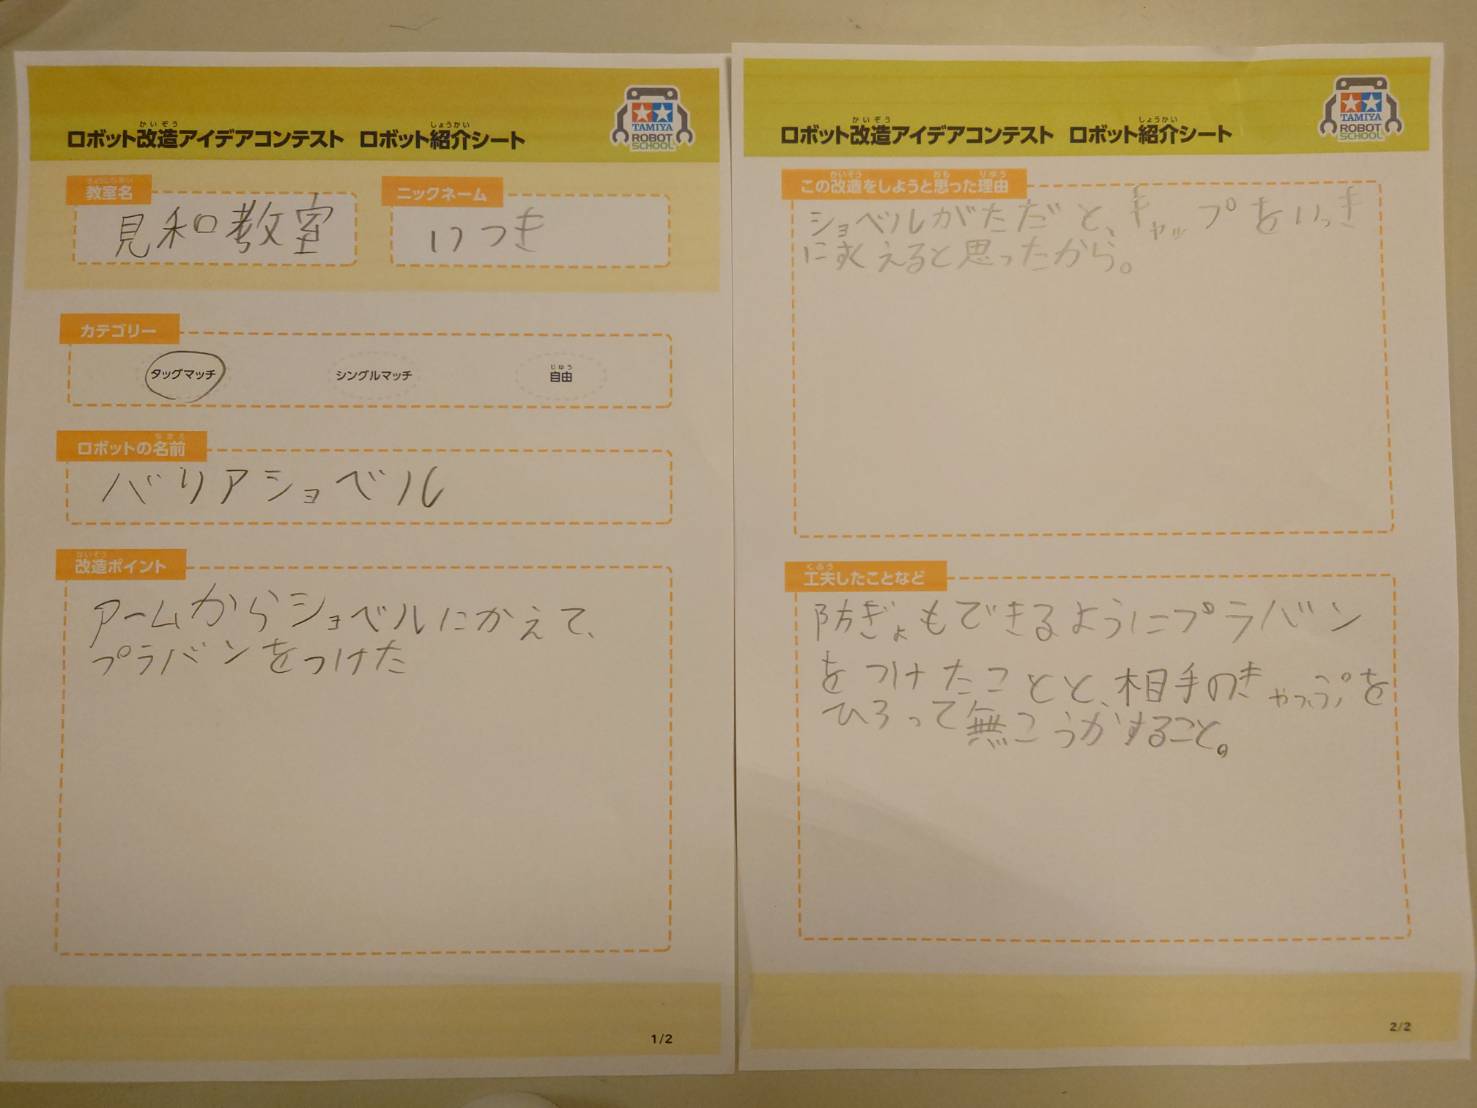 ロボット改造アイデアコンテスト ロボット紹介シート
かいぞう
しょうかい
TAMIYA
ROBOT
SCHOOL
教室名
見和教室
ニックネーム
いつき
カテゴリー
タッグマッチ
シングルマッチ
自由
じゆう
ロボットの名前
なまえ
バリアショベル
改造ポイント
かいぞう
アームからショベルにかえて、
プラバンをつけた
1/2
ロボット改造アイデアコンテスト ロボット紹介シート
かいぞう
しょうかい
TAMIYA
ROBOT
SCHOOL
この改造をしようと思った理由
かいぞう
おも
りゆう
ショベルがただと、キャップをいっき
に えると思ったから。
工夫したことなど
くふう
防ぎょもできるようにプラバン
をつけたことと、相手のきゃっぷを
ひろって無こうかすること。
2/2